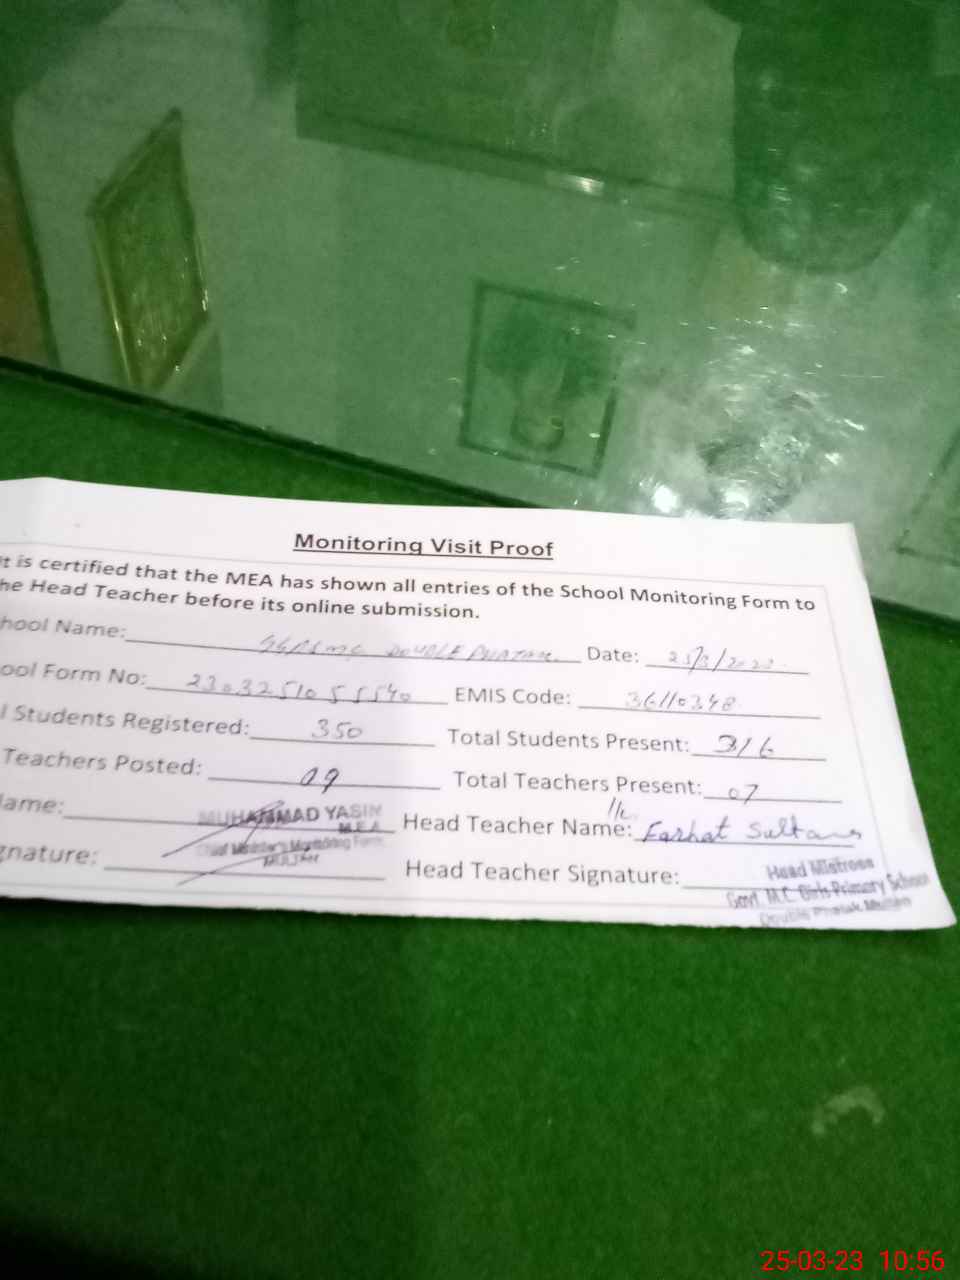 Monitoring Visit Proof
It is certified that the MEA has shown all entries of the School Monitoring Form to
he Head Teacher before its online submission.
hool Name: DOUBLE Date: 25/3/2023
ool Form No: 2303251055540 EMIS Code: 36110348
l Students Registered: 350 Total Students Present: 316
Teachers Posted: 09 Total Teachers Present: 07
I/c
ame: MUHAMMAD YASIN Head Teacher Name: Farhat Sultana
M.E.A
Chief Minister's Monitoring Force
MULTAN
gnature: Head Teacher Signature:
Head Mistress
Govt. M.C. Girls Primary School
Double Phatak Multan
25-03-23 10:56